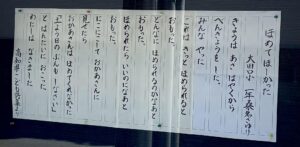 ほめてほしかった
大田口小二年
きょうは あさ はやくから
へんきょうをした。
みんな やった
これは きっと ほめられると
おもった。
どんなに ほめられるのかなあと
おもった。
ほめられたら いいのになあと
おもった。
にこにこして おかあさんに
見せたら
おかあさんは ほめてくれなかった
とはんたいに おこった
わたしは なきました
高知県こども詩集より